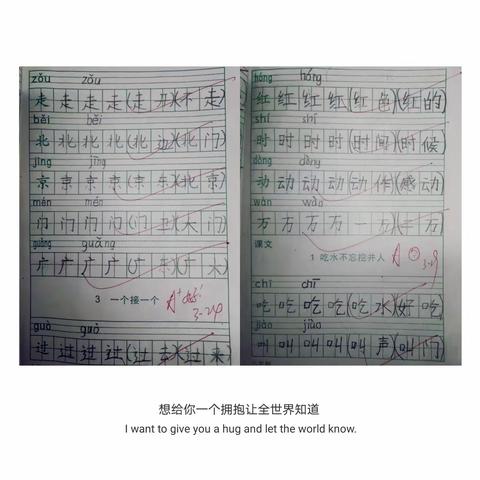 zǒu zǒu
走 走 走 走 (走 卫)(不 走)
běi běi
北 北 北 北 (北 边)(北 门)
jīng jīng
京 京 京 京 (京 东)(北 京)
mén mén
门 门 门 门 (门 卫)(大 门)
guǎng guǎng
广 广 广 广 (广 东)(广 大)
3 一个接一个
A+ 好! 3-24
guò guò
过 过 过 过 (过 去)(过 来)
hóng hóng
红 红 红 红 (红 色)(红 的)
shí shí
时 时 时 时 (时 间)(时 候)
dòng dòng
动 动 动 动 (动 作)(感 动)
wàn wàn
万 万 万 万 (一 万)(千 万)
课文
1 吃水不忘挖井人
A
chī chī
吃 吃 吃 吃 (吃 水)(好 吃)
jiào jiào
叫 叫 叫 叫 (叫 声)(叫 门)
想给你一个拥抱让全世界知道
I want to give you a hug and let the world know.